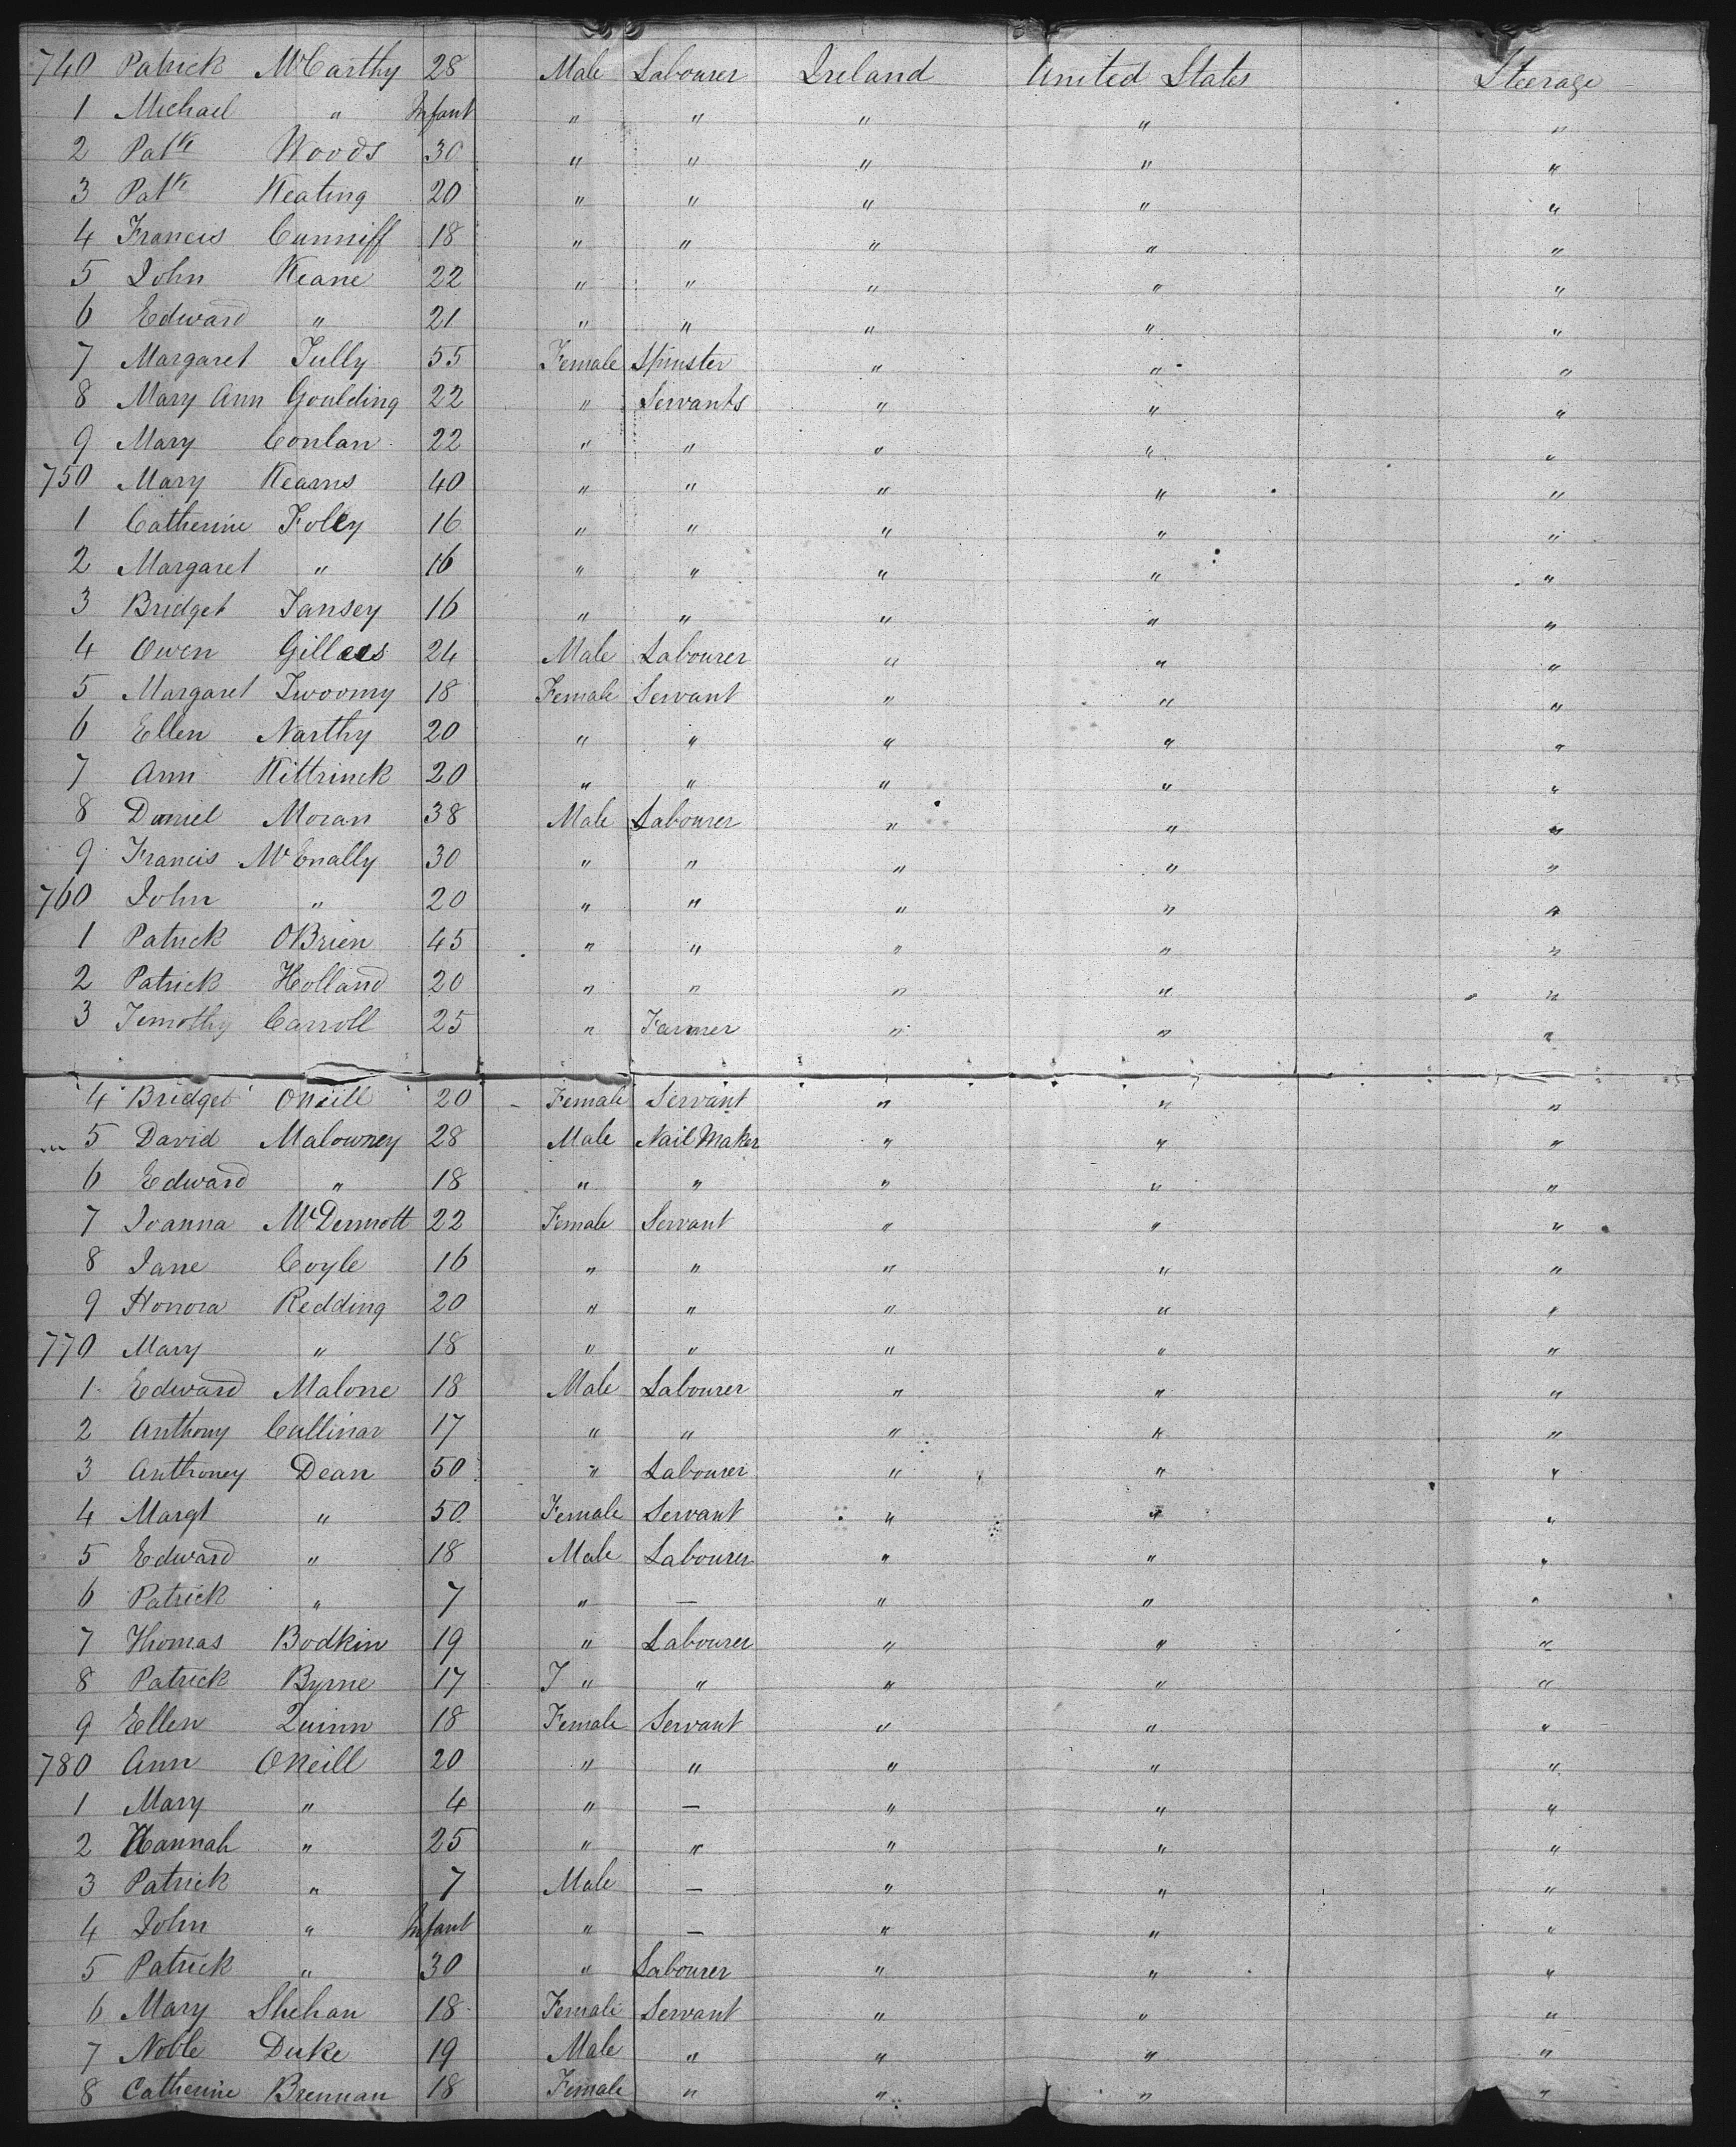 740 Patrick McCarthy 28 Male Labourer Ireland United States Steerage
1 Michael " Infant " " " " "
2 Patk Woods 30 " " " " "
3 Patk Keating 20 " " " " "
4 Francis Cunniff 18 " " " " "
5 John Keane 22 " " " " "
6 Edward " 21 " " " " "
7 Margaret Tully 55 Female Spinster " " "
8 Mary Ann Goulding 22 " Servants " " "
9 Mary Conlan 22 " " " " "
750 Mary Kearns 40 " " " " "
1 Catherine Foley 16 " " " " "
2 Margaret " 16 " " " " "
3 Bridget Tansey 16 " " " " "
4 Owen Gillees 24 Male Labourer " " "
5 Margaret Twoomy 18 Female Servant " " "
6 Ellen Narthy 20 " " " " "
7 Ann Kittrinck 20 " " " " "
8 Daniel Moran 38 Male Labourer " " "
9 Francis McEnally 30 " " " " "
760 John " 20 " " " " "
1 Patrick OBrien 45 " " " " "
2 Patrick Holland 20 " " " " "
3 Timothy Carroll 25 " Farmer " " "
4 Bridget ONeill 20 Female Servant " " "
5 David Malowney 28 Male Nail Maker " " "
6 Edward " 18 " " " " "
7 Joanna McDermott 22 Female Servant " " "
8 Jane Coyle 16 " " " " "
9 Honora Redding 20 " " " " "
770 Mary " 18 " " " " "
1 Edward Malone 18 Male Labourer " " "
2 Anthony Cullinar 17 " " " " "
3 Anthoney Dean 50 " Labourer " " "
4 Margt " 50 Female Servant " " "
5 Edward " 18 Male Labourer " " "
6 Patrick " 7 " — " " "
7 Thomas Bodkin 19 " Labourer " " "
8 Patrick Byrne 17 " " " " "
9 Ellen Quinn 18 Female Servant " " "
780 Ann ONeill 20 " " " " "
1 Mary " 4 " — " " "
2 Hannah " 25 " " " " "
3 Patrick " 7 Male — " " "
4 John " Infant " — " " "
5 Patrick " 30 " Labourer " " "
6 Mary Shehan 18 Female Servant " " "
7 Noble Duke 19 Male " " " "
8 Catherine Brennan 18 Female " " " "